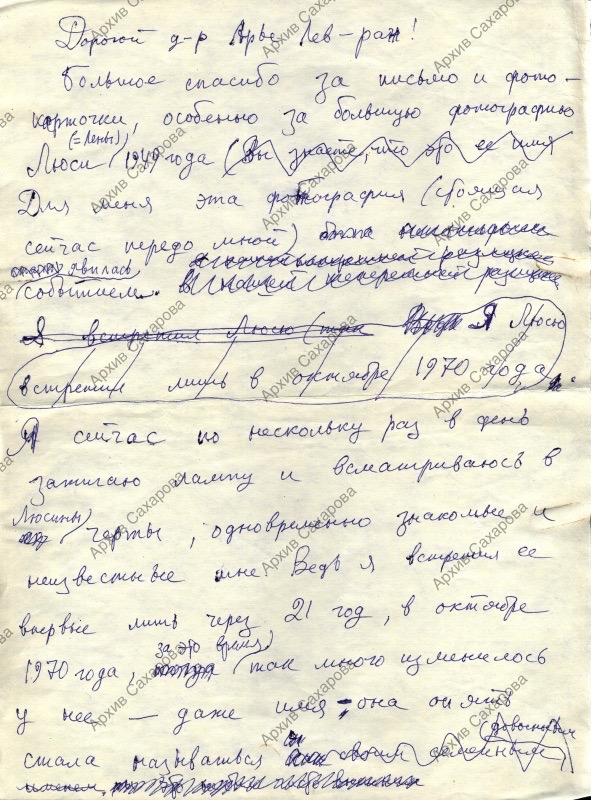 Дорогой д-р Арье Лев-ран!
Большое спасибо за письмо и фото-
карточки, особенно за большую фотографию
(=Лены)
Люси 1949 года (Вы знаете, что это ее имя
Для меня эта фотография (стоящая
сейчас передо мной) была
явилась
событием.
Я встретил Люсю (так Я Люсю
встретил лишь в октябре 1970 года,
Я сейчас по нескольку раз в день
зажигаю лампу и всматриваюсь в
Люсины
черты, одновременно знакомые и
неизвестные мне. Ведь я встретил ее
впервые лишь через 21 год, в октябре
за это время
1970 года, так много изменилось
у нее — даже имя, она опять
(довоенным
стала называться своим семейным
именем,
Архив Сахарова